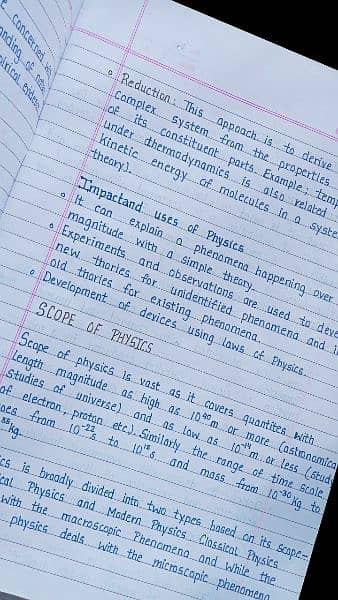 e concerned with
nding of new
pirical evidenc
Reduction: This appoach is to derive
complex system from the properties
of its constituent parts. Example; temp
under dthermodynamics is also related
kinetic energy of molecules in a syste
theory).
Impactand uses of Physics
It can explain a phenomena happening over
magnitude with a simple theory.
Experiments and observations are used to deve
new thories for unidentified phenomena and i
old thories for existing phenomena.
Development of devices using laws of Physics.
SCOPE OF PHYSICS
Scope of physics is vast as it covers quantites with
Length magnitude as high as 10⁴⁰m or more (astronomica
studies of universe) and as low as 10⁻¹⁴m or less (study
of electron, proton etc). Similarly the range of time scale
oes from 10⁻²²s to 10¹⁸s and mass from 10⁻³⁰kg to
⁵⁵kg.
cs is broadly divided into two types based on its scope-
cal Physics and Modern Physics. Classical Physics
with the macroscopic Phenomena and while the
physics deals with the microscopic phenomena